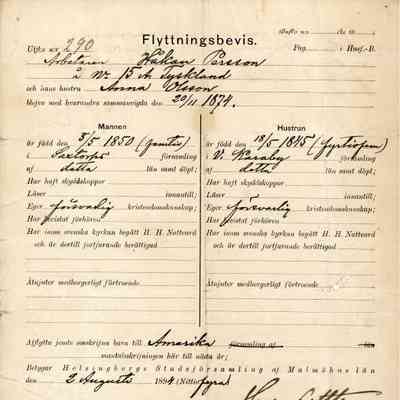 Flyttningsbevis.
Utfts nr 290
Pag. i Husf.-B.
Arbetaren Håkan Persson
å Nr 15 Tyskland
och hans hustru Anna Olsson
blefvo med hvarandra sammanvigda den 20/11 1874.
Mannen
är född den 3/5 1850 (femtio)
i Saxtorps församling
af detta län samt döpt;
Har haft skyddskoppor
Läser innantill;
Eger försvarlig kristendomskunskap;
Har bevistat förhören
Har inom svenska kyrkan begått H. H. Nattvard
och är dertill fortfarande berättigad
Åtnjuter medborgerligt förtroende
Hustrun
är född den 18/5 1845 (fyrtiofem)
i V. Karaby församling
af detta län samt döpt;
Har haft skyddskoppor
Läser innantill;
Eger försvarlig kristendomskunskap;
Har bevistat förhören
Har inom svenska kyrkan begått H. H. Nattvard
och är dertill fortfarande berättigad
Åtnjuter medborgerligt förtroende
Afflytta jemte omskrifna barn till Amerika församling af län
mantalsskrifningen hör till nästa år;
Betygar Helsingborgs Stadsförsamling af Malmöhus län
den 2 Augusti 1894 (Nittiofyra)